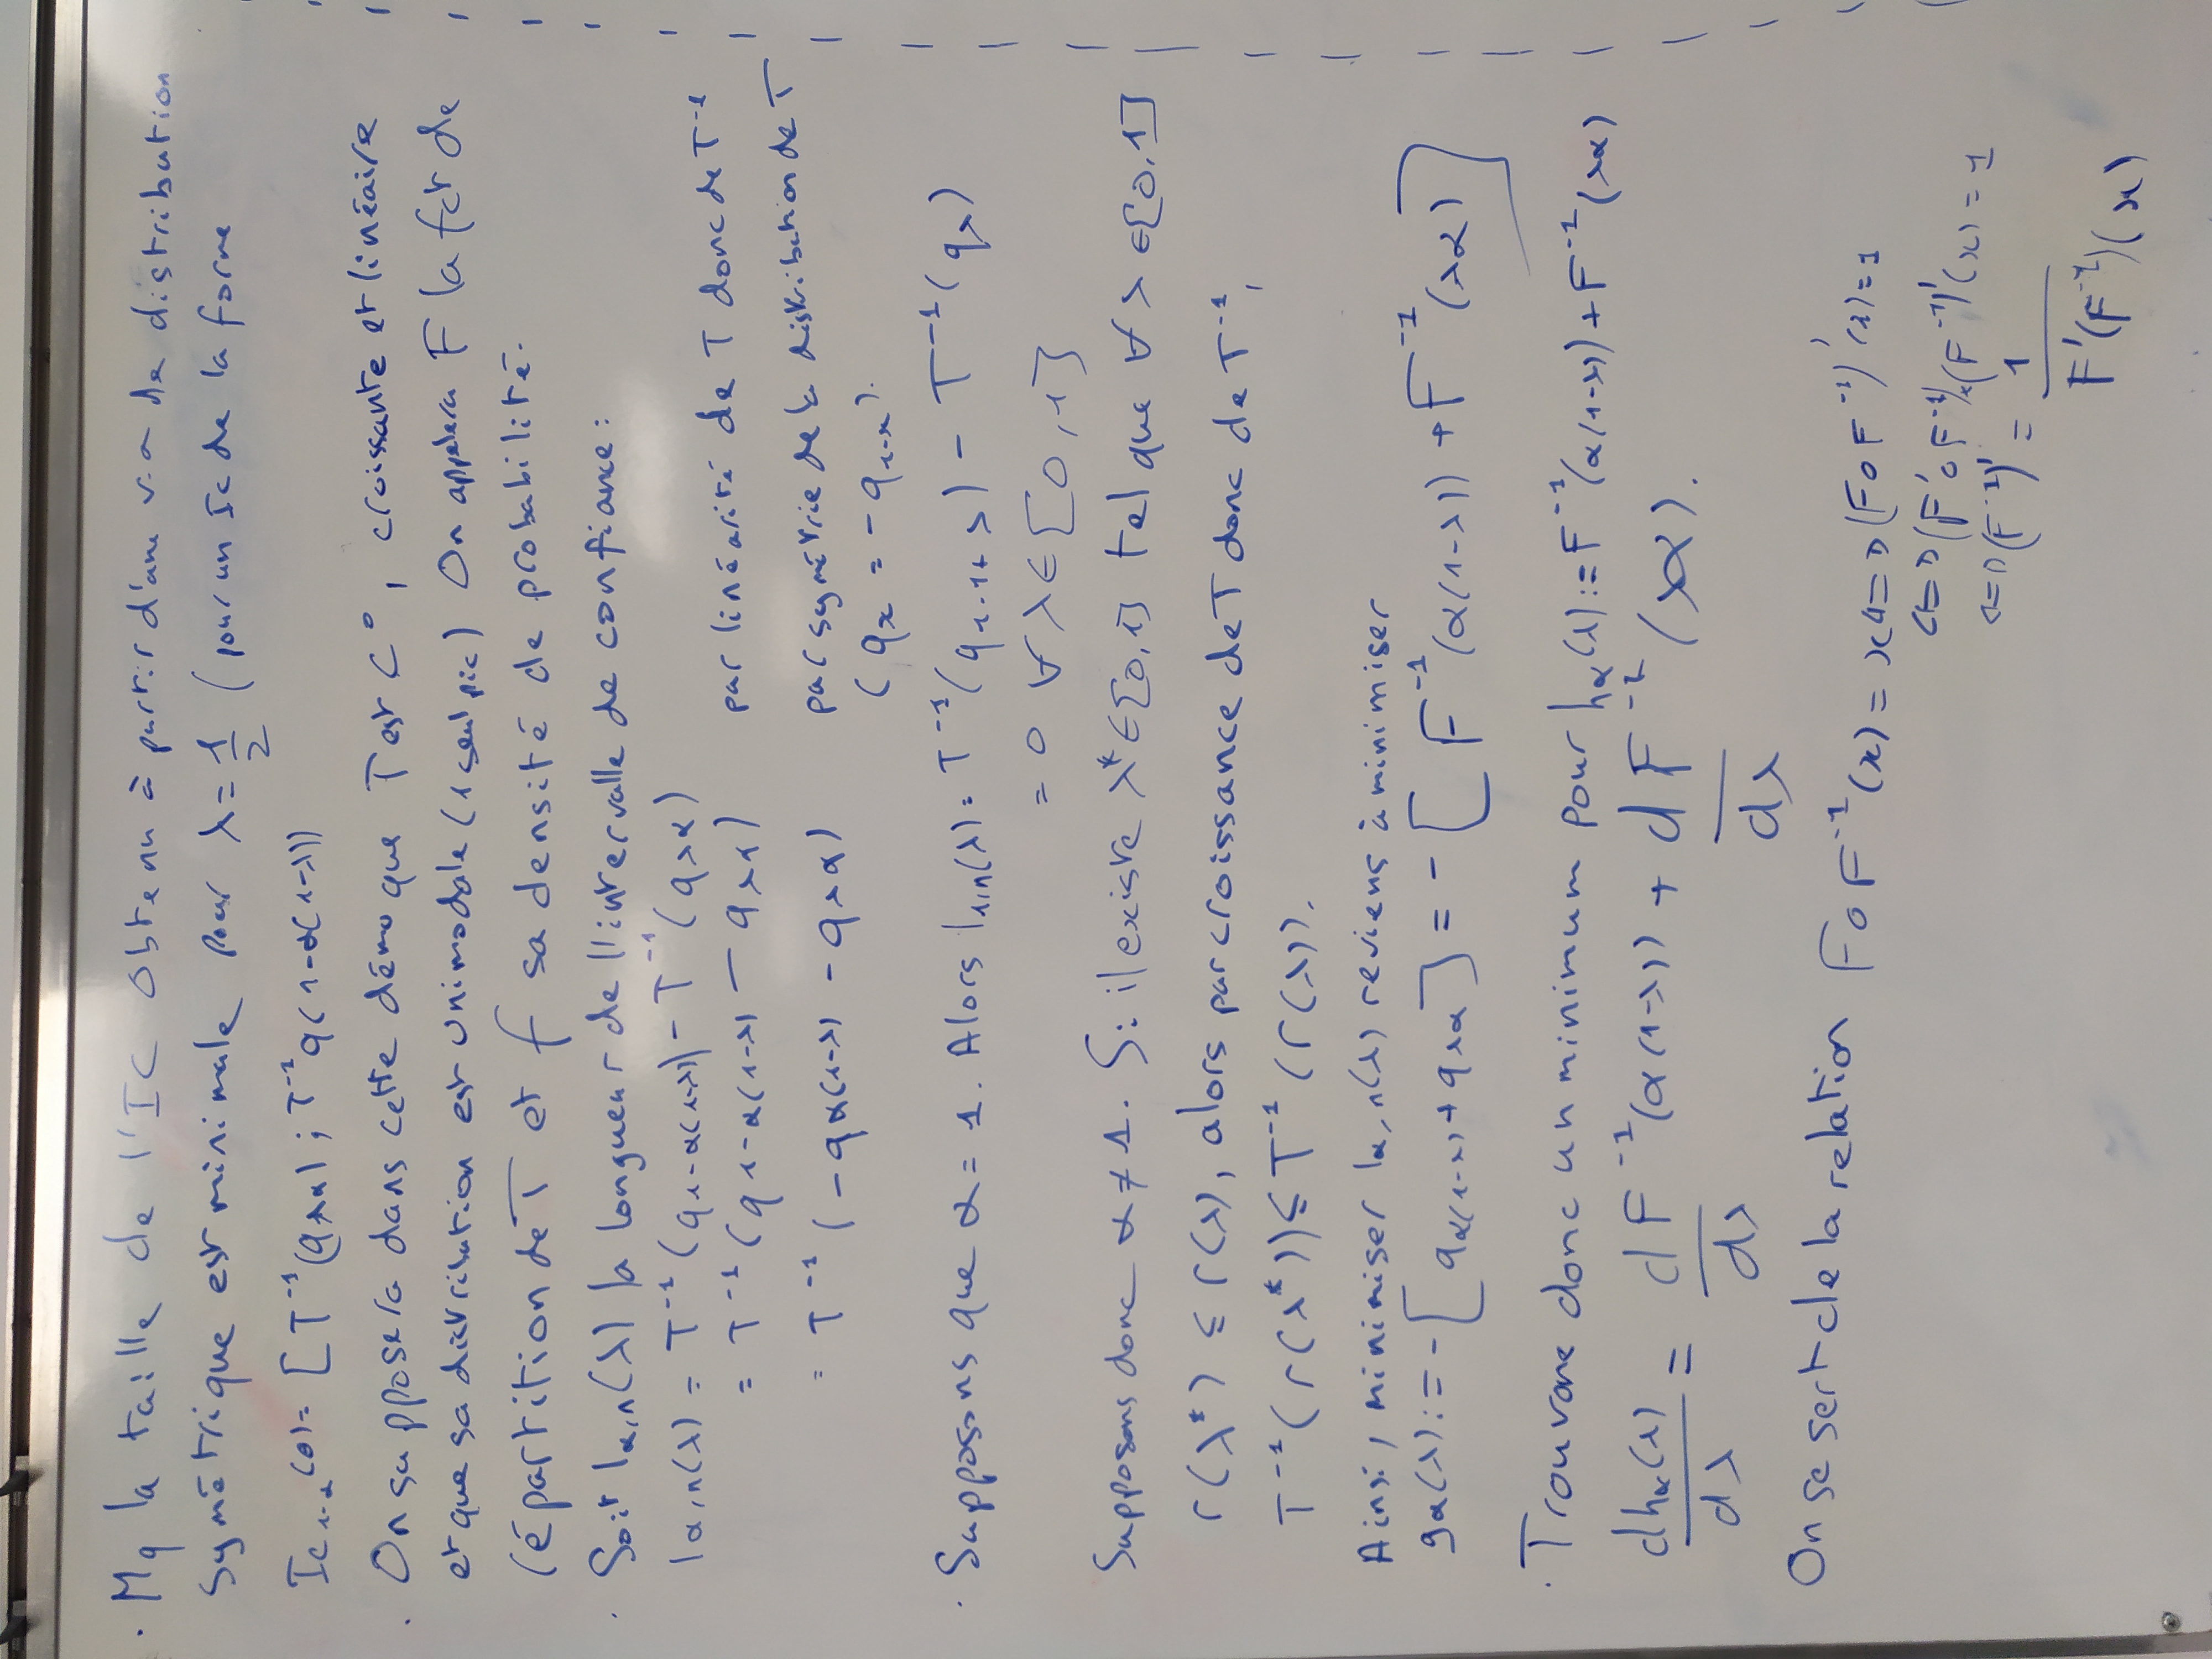 . Mq la taille de l'IC obtenu à partir d'une v.a de distribution
symétrique est minimale pour λ = 1/2 (pour un Ic de la forme
Ic₁₋α(θ) = [T⁻¹(qλα) ; T⁻¹q(1-α(1-λ))
. On supposera dans cette démo que T est C°, croissante et linéaire
et que sa distribution est unimodale (1 seul pic) On appelera F la fct de
répartition de T et f sa densité de probabilité.
. Soit lα,n(λ) la longueur de l'intervalle de confiance :
lα,n(λ) = T⁻¹(q1-α(1-λ)) - T⁻¹(qλα)
= T⁻¹(q1-α(1-λ) - qλα) par linéarité de T donc de T⁻¹
= T⁻¹(-qα(1-λ) - qλα) par symétrie de la distribution de T
(qx = -q1-x).
. Supposons que α = 1. Alors l1,n(λ) = T⁻¹(q1-1+λ) - T⁻¹(qλ)
= 0 ∀ λ ∈ [0,1]
Supposons donc α ≠ 1. Si il existe λ* ∈ [0,1] tel que ∀ λ ∈ [0,1]
r(λ*) ≤ r(λ), alors par croissance de T donc de T⁻¹,
T⁻¹(r(λ*)) ≤ T⁻¹(r(λ)).
Ainsi, minimiser lα,n(λ) reviens à minimiser
gα(λ) := -[qα(1-λ) + qλα] = -[F⁻¹(α(1-λ)) + F⁻¹(λα)]
. Trouvons donc un minimum pour hα(λ) := F⁻¹(α(1-λ)) + F⁻¹(λα)
dhα(λ)/dλ = d/dλ F⁻¹(α(1-λ)) + d/dλ F⁻¹(λα).
On se sert de la relation F∘F⁻¹(x) = x <=> (F∘F⁻¹)'(x) = 1
<=> (F'∘F⁻¹)×(F⁻¹)'(x) = 1
<=> (F⁻¹)' = 1/F'(F⁻¹)(x)